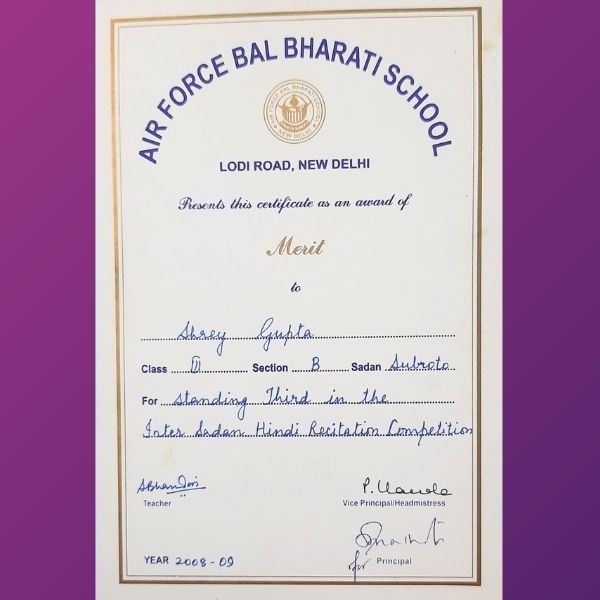 AIR FORCE BAL BHARATI SCHOOL
AIR FORCE BAL BHARATI SCHOOL
NEW DELHI
LODI ROAD, NEW DELHI
Presents this certificate as an award of
Merit
to
Shrey Gupta
Class III Section B Sadan Subroto
For standing Third in the
Inter Sadan Hindi Recitation Competition
Teacher
Vice Principal/Headmistress
for Principal
YEAR 2008-09